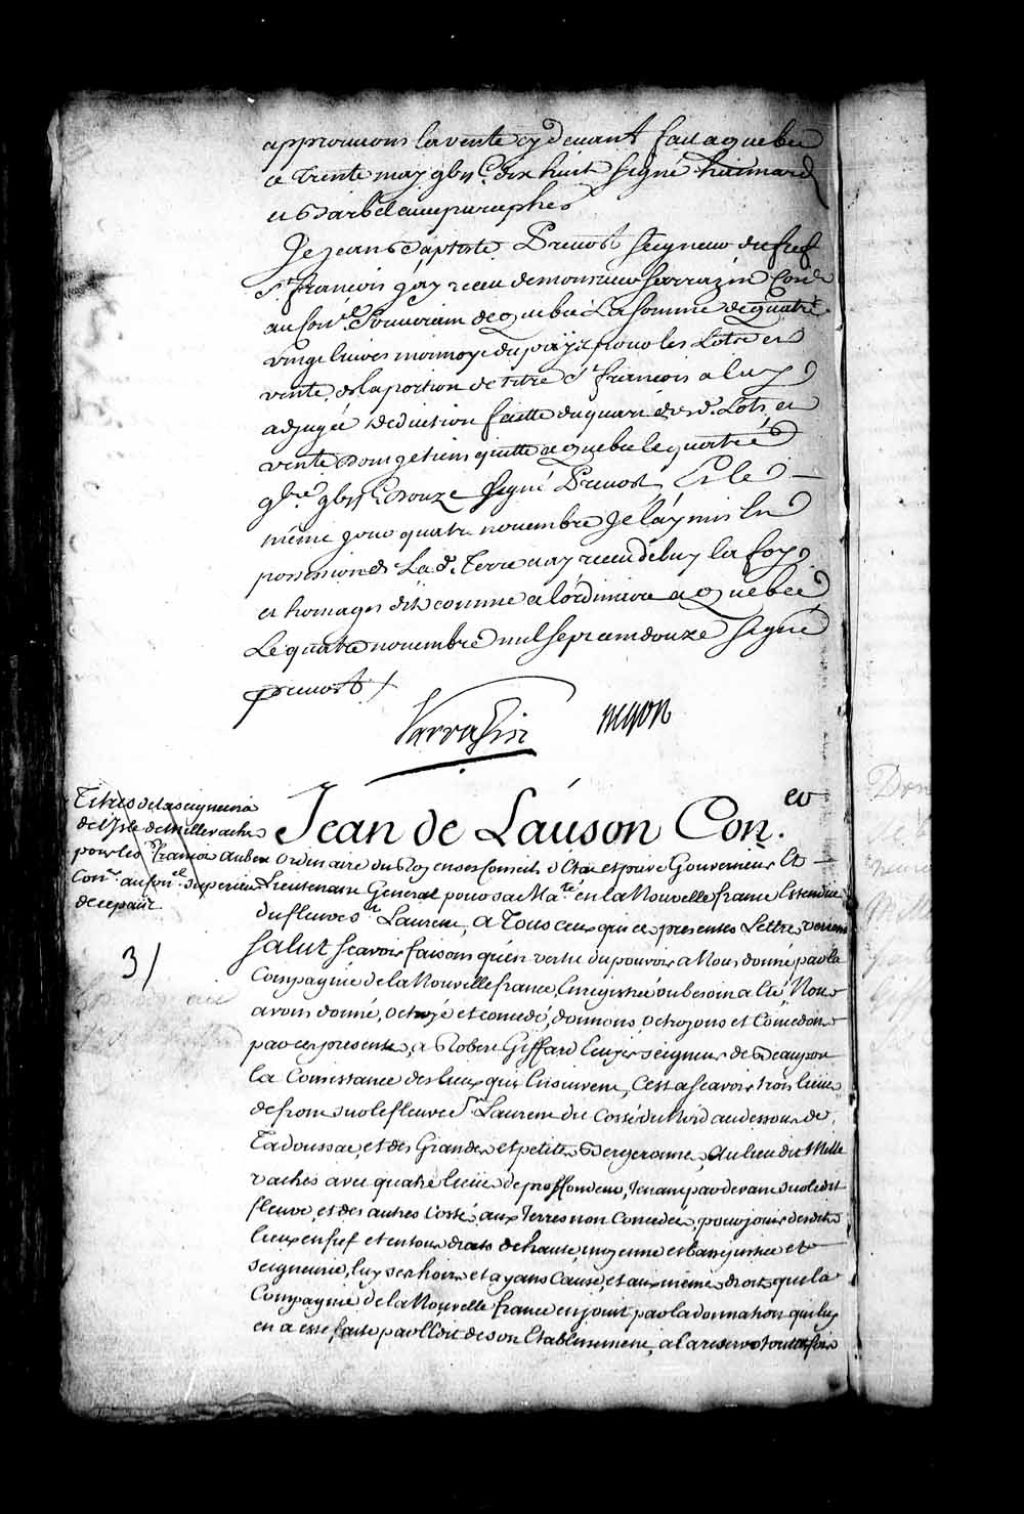 approuvons la vente cy devant fait a quebec
ce trente may gbii C. dix huit signé haimard
et Barbel avec paraphes
Je jean Baptiste Prevost seigneur du fief
St. francois j'ay receu de monsieur Sarrazin Conr.
au Conel. Souverain de quebec La somme de quatre
vingt livres monnoye du païs pour les Lots et
vente de la portion de terre St. francois a luy
adjugée deduction faitte du quart desd. Lots et
vente dont je tiens quitte a quebec le quatre
gbre. gbii C. douze signé Prevost, Et le
même jour quatre novembre Je l'ay mis en
possession de La de. Terre et ay receu de luy la foy
et homages dit comme a l'ordinaire a Quebec
Le quatre novembre mil sept cent douze signé
prevost /
Sarrasin
Begon
Titres de la seigneurie
de l'Isle de Mille vaches
pour le Sr. francois Aubert
Conr. au Conel. Superieur
de ce païs
3/
Jean de Lauson Coner.
Ordinaire du Roy en ses Conseils d'Etat et privé Gouverneur Et
Lieutenant General pour sa Mate. en la Nouvelle france Estendue
du fleuve St. Laurens, A Tous ceux qui ces presentes Lettres verront
Salut Scavoir faisons qu'en vertu du pouvoir a Nous donné par la
Compagnie de la Nouvelle france, Enregistré ou besoin a Eté, Nous
avons donné, octroyé et concedé, donnons, octroyons et Concedons
par ces presentes, a Robert Giffard Ecuyer seigneur de Beauport
la Consistance des lieux qui Ensuivent, C'est a scavoir trois lieües
de front sur le fleuve St. Laurens du Costé du Nord au dessous de
Tadoussac, et des Grandes et petites Bergeronnes, Au lieu dit Mille
vaches avec quatre lieües de proffondeur, tenant par devant sur le dit
fleuve, et des autres Costés aux Terres non Concedées, pour jouir desdits
lieux en fief et en tous droits de haute, moyenne et basse justice et
seigneurie, luy ses hoirs et ayans Cause, et aux mêmes droits que la
Compagnie de la Nouvelle france en jouit par la donnation qui luy
en a esté faite par l'Edit de son Etablissement, a la reserve toutesfois